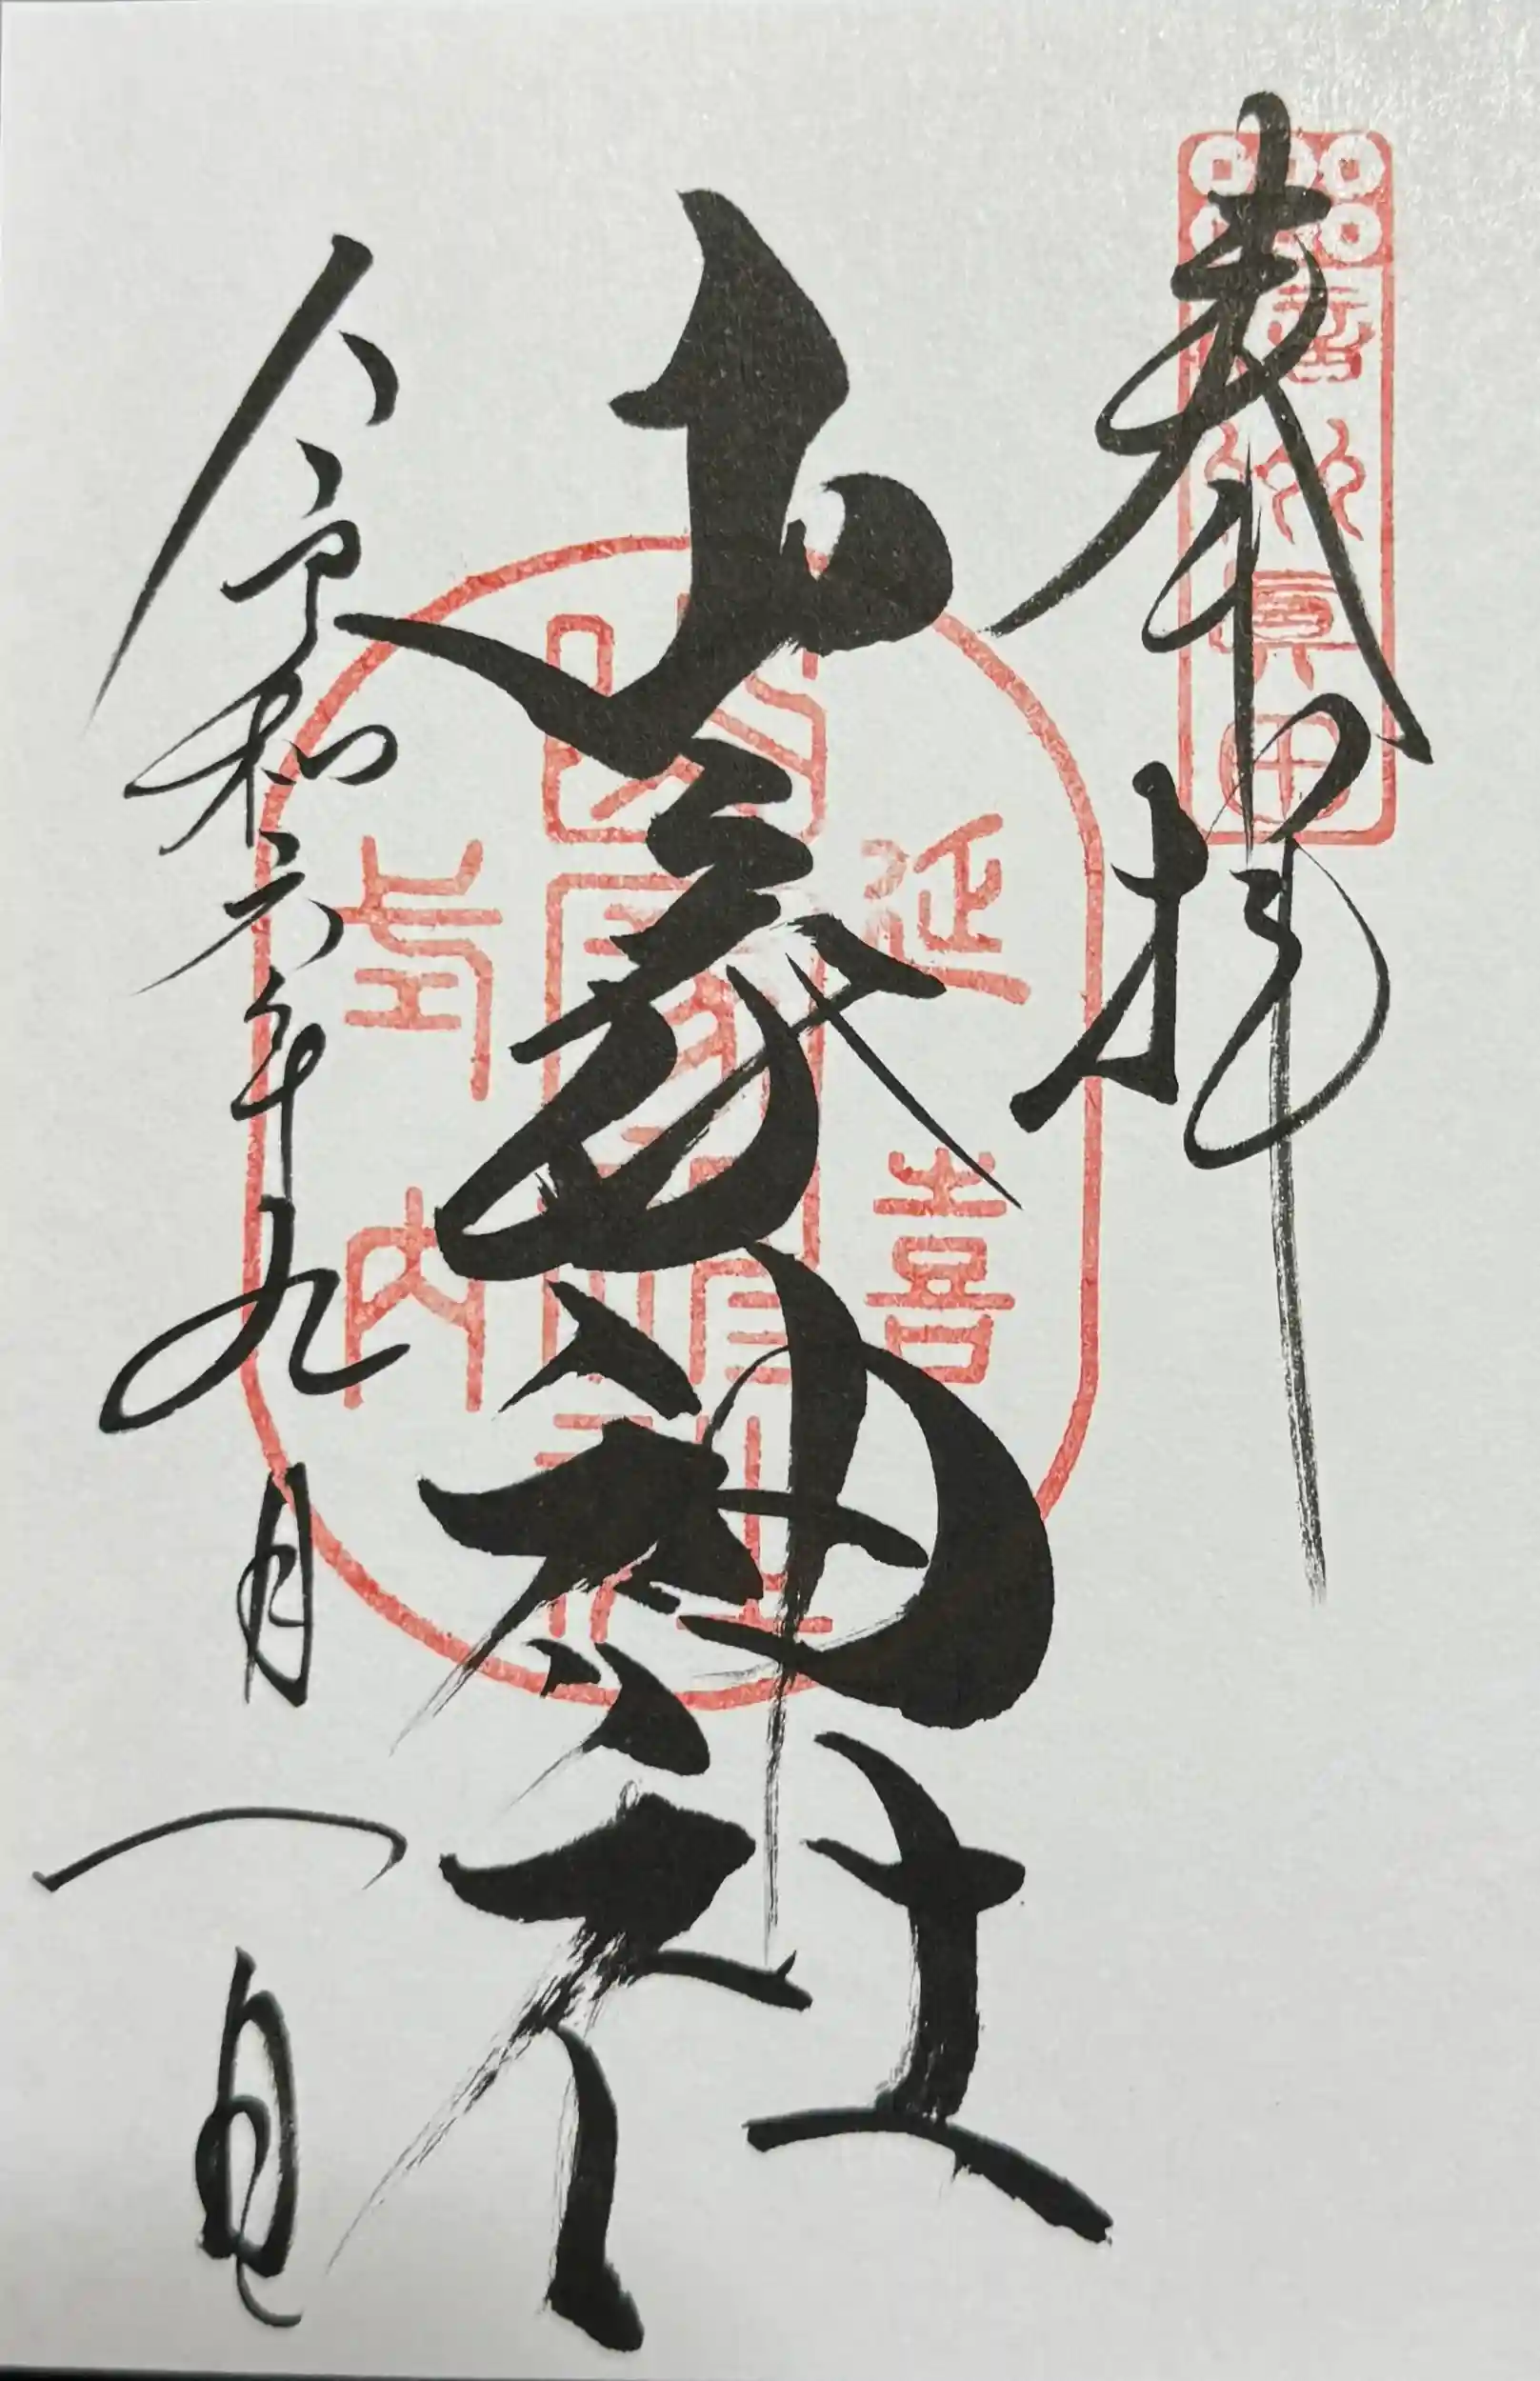 奉拝
信州眞田
山家神社
延喜
式内
山家神社
令和六年九月一日